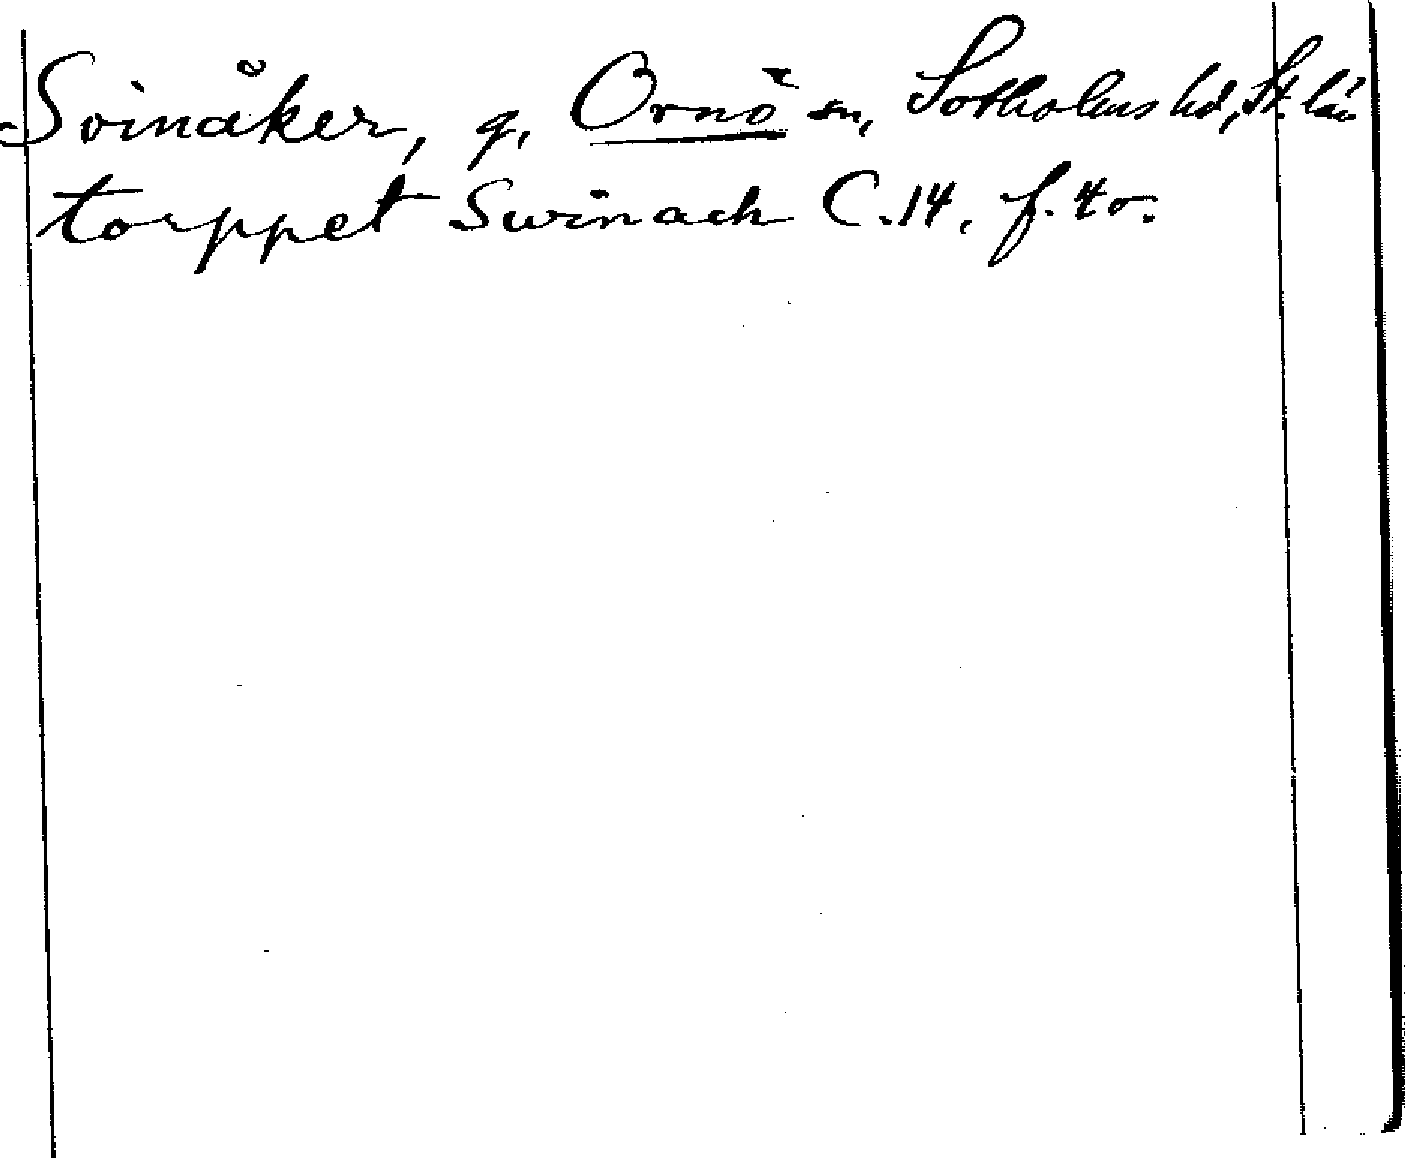 Svinåker, g. Ornö sn, Sotholms hd, St. län
torppet Swinach C.14. f. 40.